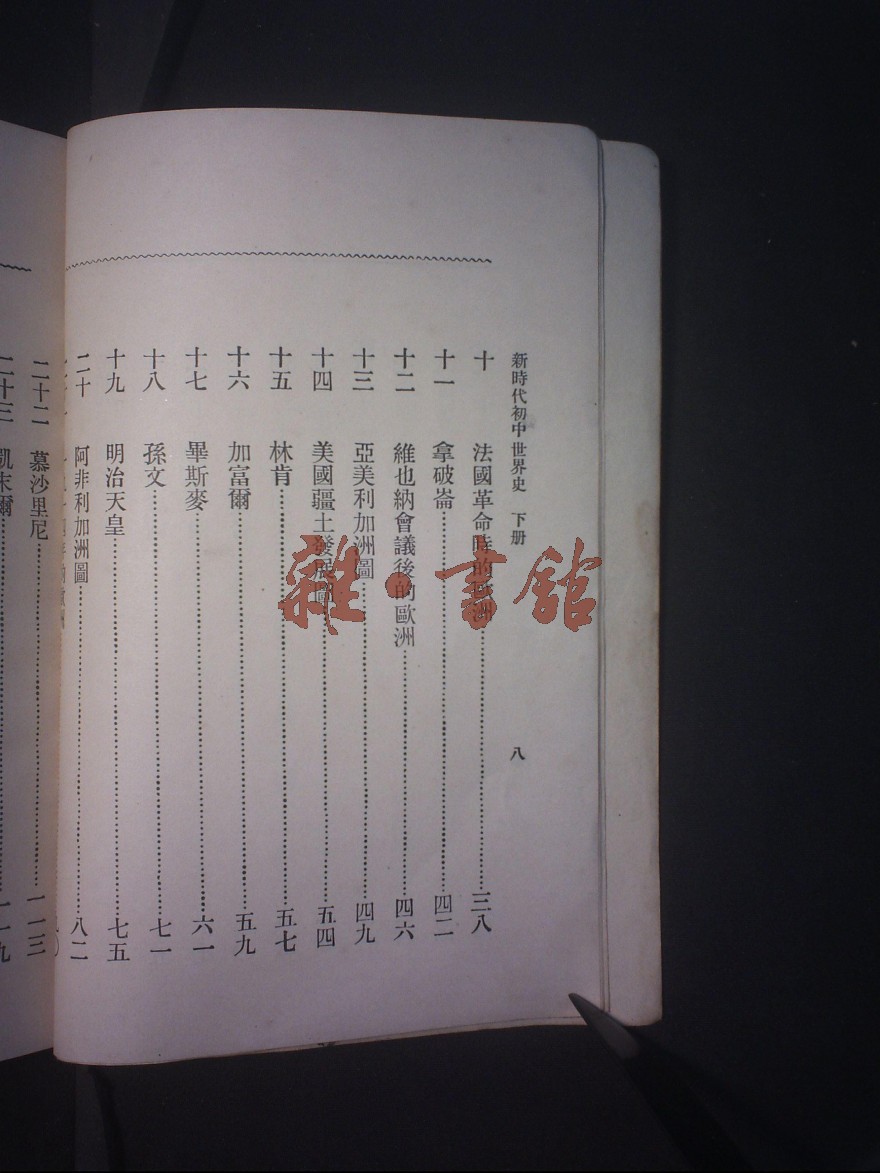 新時代初中世界史 下册
八
十 法國革命時的歐洲 三八
十一 拿破崙 四二
十二 維也納會議後的歐洲 四六
十三 亞美利加洲圖 四九
十四 美國疆土發展圖 五四
十五 林肯 五七
十六 加富爾 五九
十七 畢斯麥 六一
十八 孫文 七一
十九 明治天皇 七五
二十 阿非利加洲圖 八二
二十二 慕沙里尼 一一三
二十三 凱末爾 一一九
雜·書館